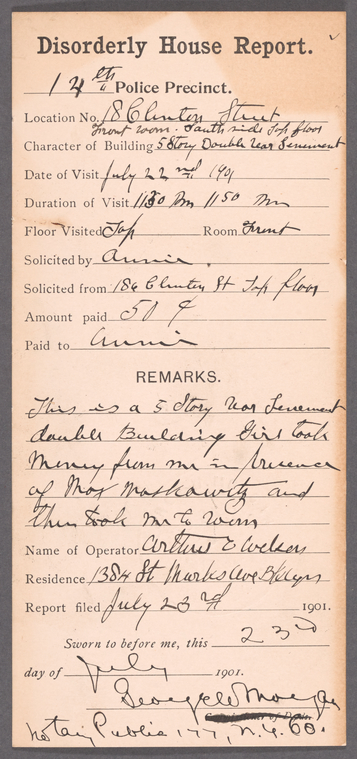 Disorderly House Report.
14th Police Precinct.
Location No. 186 Clinton Street
Front room. South side Top floor
Character of Building 5 Story Double rear Tenement
Date of Visit July 22nd 1901
Duration of Visit 1130 Pm 1150 Pm
Floor Visited Top Room Front
Solicited by Annie.
Solicited from 186 Clinton St Top floor
Amount paid 50 ¢
Paid to Annie
REMARKS.
This is a 5 Story rear Tenement
double Building Girl took
Money from me in presence
of Max Moskowitz and
then took me to room
Name of Operator Arthur E Wilson
Residence 1384 St Marks Ave Bklyn
Report filed July 23rd 1901.
Sworn to before me, this 23rd
day of July 1901.
George W Morgan
Notary Public 177, N.Y. Co.